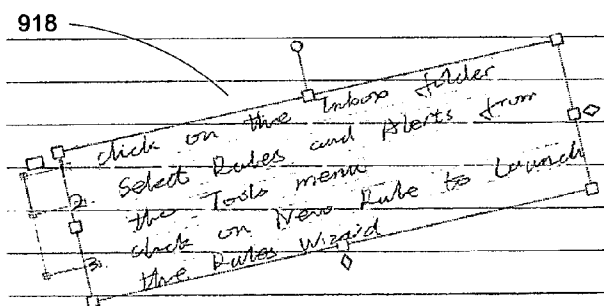 918
click on the Inbox folder
2. Select Rules and Alerts from
the Tools menu
3. click on New Rule to Launch
the Rules Wizard